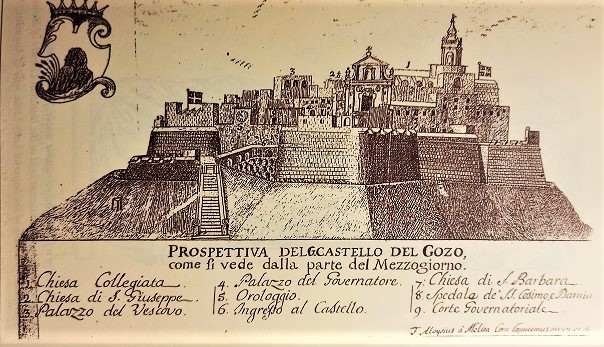 PROSPETTIVA DEL CASTELLO DEL GOZO,
come si vede dalla parte del Mezzogiorno.
1. Chiesa Collegiata
2. Chiesa di S. Giuseppe
3. Palazzo del Vescovo
4. Palazzo del Governatore.
5. Orologgio.
6. Ingresso al Castello.
7. Chiesa di S. Barbara
8. Spedale de' SS. Cosimo, e Damia
9. Corte Governatoriale.
F. Aloysius à Melita